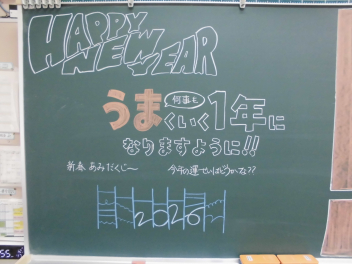 HAPPY
NEW YEAR
何事も
うまくいく1年に
なりますように!!
新春 あみだくじ〜 今年の運せいはどうかな??
2026
55